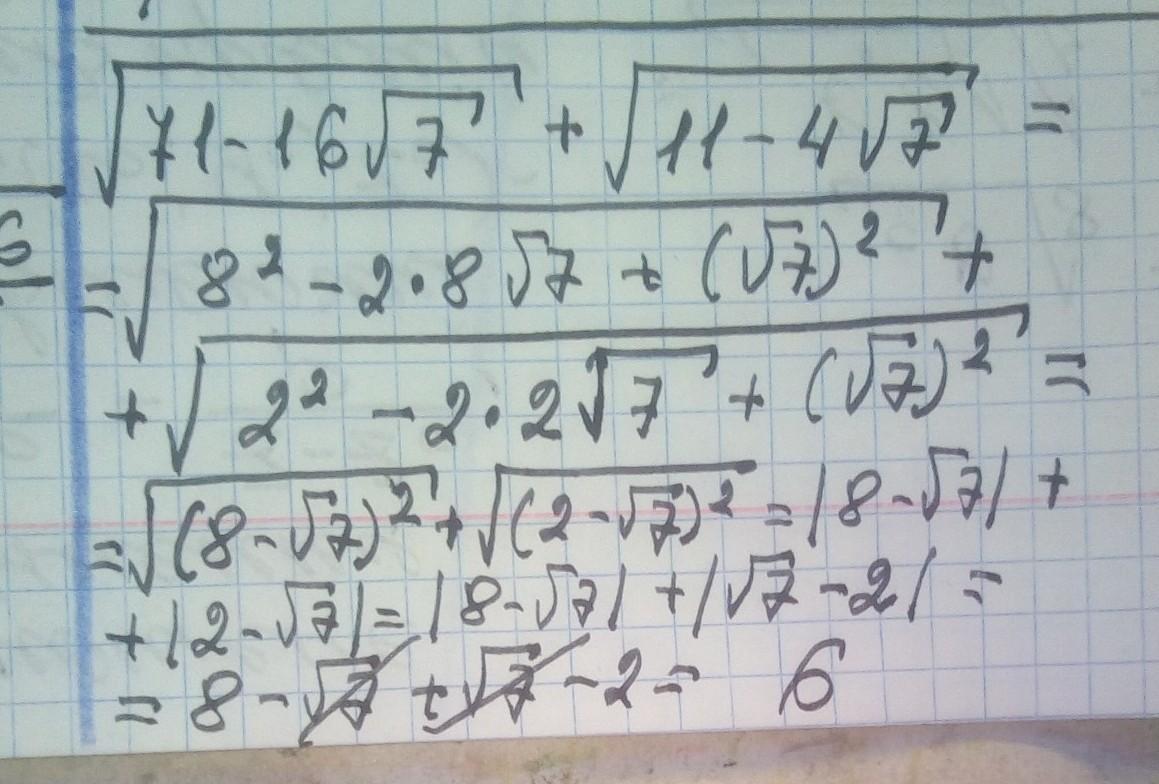 √(71-16√7) + √(11-4√7) =
= √(8² - 2·8√7 + (√7)²) +
+ √(2² - 2·2√7 + (√7)²) =
= √((8-√7)²) + √((2-√7)²) = |8-√7| +
+ |2-√7| = |8-√7| + |√7-2| =
= 8 - √7 + √7 - 2 = 6
6